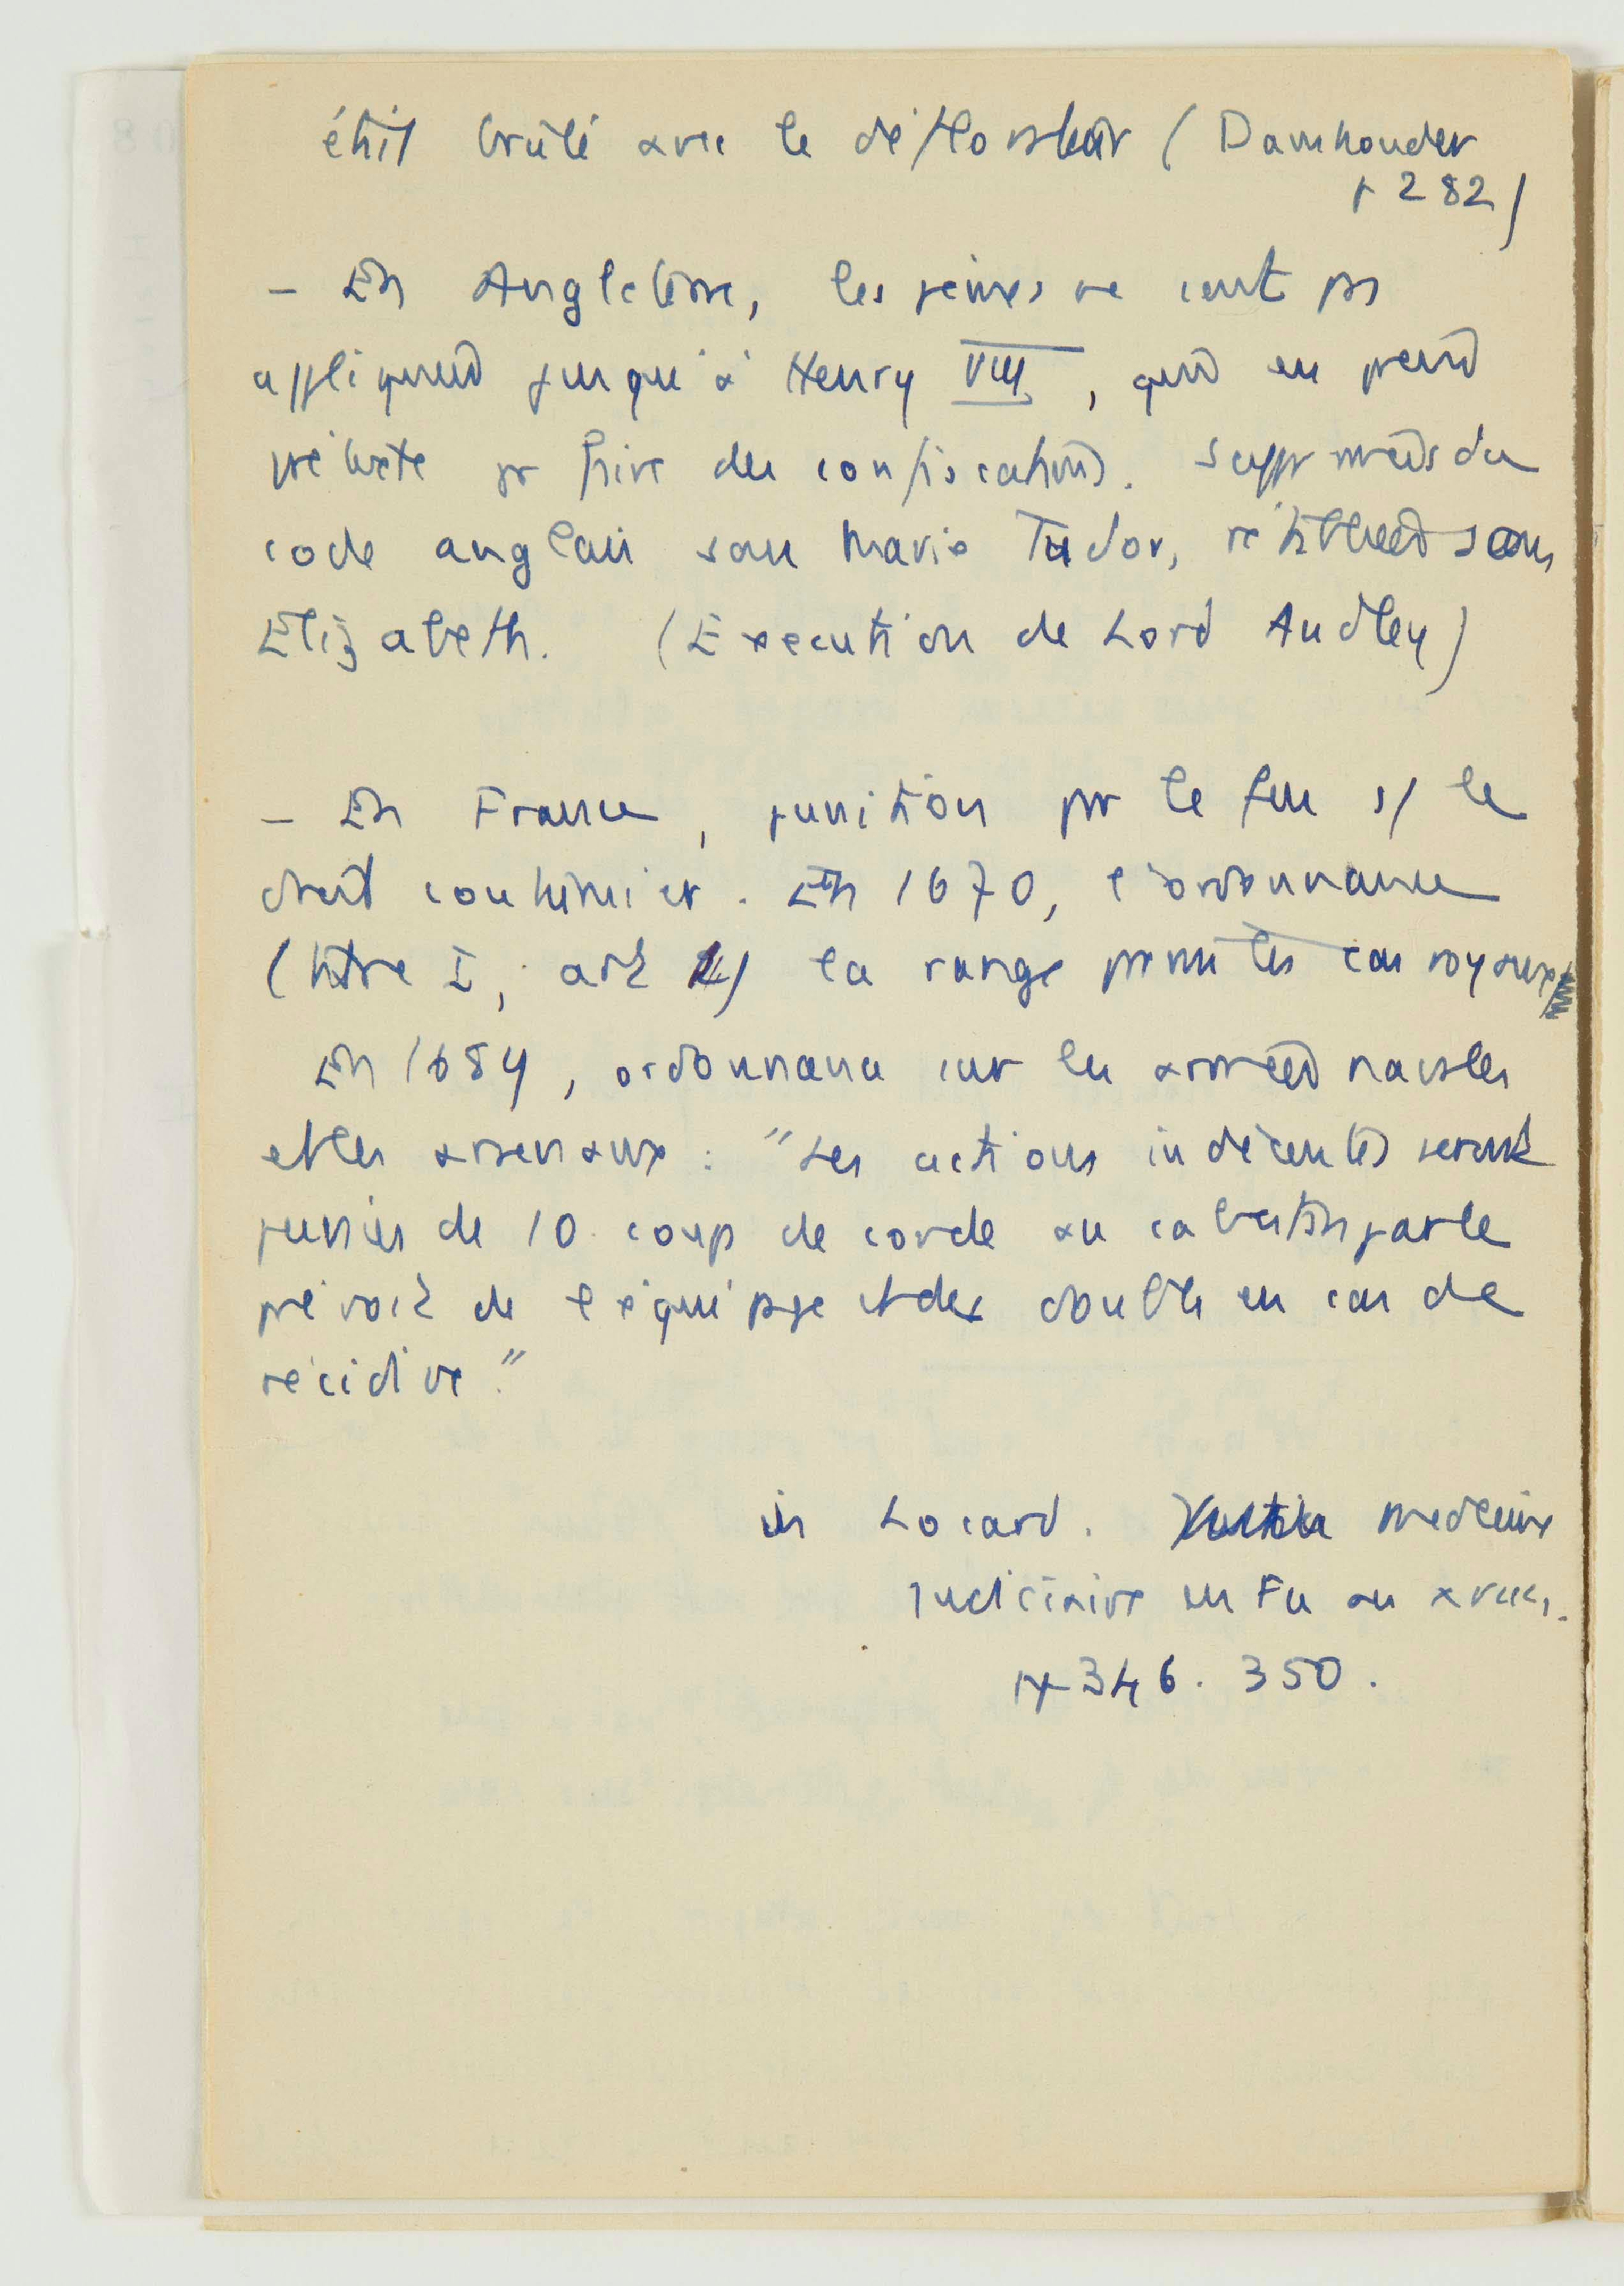 était brûlé avec le déflorateur (Damhouder
p 282)
– En Angleterre, les peines ne sont pas
appliquées jusqu'à Henry VIII, qui en prend
prétexte pr faire des confiscations. Supprimées du
code anglais sous Marie Tudor, rétablies sous
Elizabeth. (Exécution de Lord Audley)
– En France, punition par le feu s/ le
droit coutumier. En 1670, l'ordonnance
(titre I, art) la range parmi les cas royaux
En 1689, ordonnance sur les armées navales
et les arsenaux : "Les actions indécentes seront
punies de 10 coups de corde au cabestan par le
prévôt de l'équipage et du double en cas de
récidive."
in Locard. médecine
judiciaire en Fce au XVIIes.
pp 346. 350.